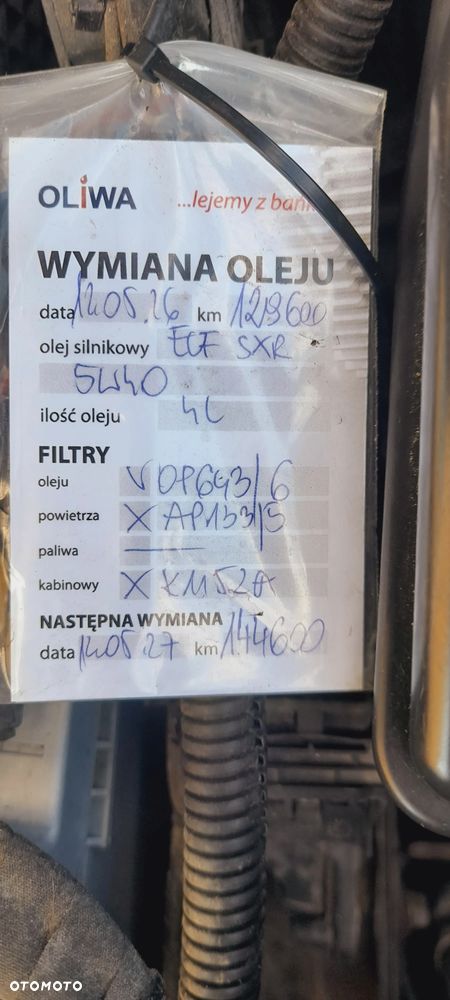 OLIWA ...lejemy z bańk
WYMIANA OLEJU
data 12.05.26 km 129600
olej silnikowy ECF SXR
5W40
ilość oleju 4L
FILTRY
oleju V OP643/6
powietrza X AP133/5
paliwa —
kabinowy X K1152A
NASTĘPNA WYMIANA
data 12.05.27 km 144600
OTOMOTO